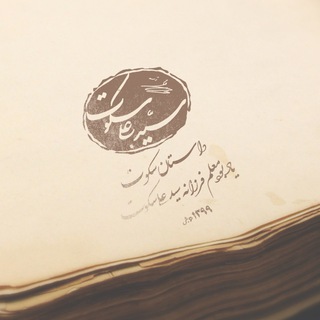 سید علی سکوت
داستان سکوت
معلم فرزانه سید علی سکوت
۱۳۹۹